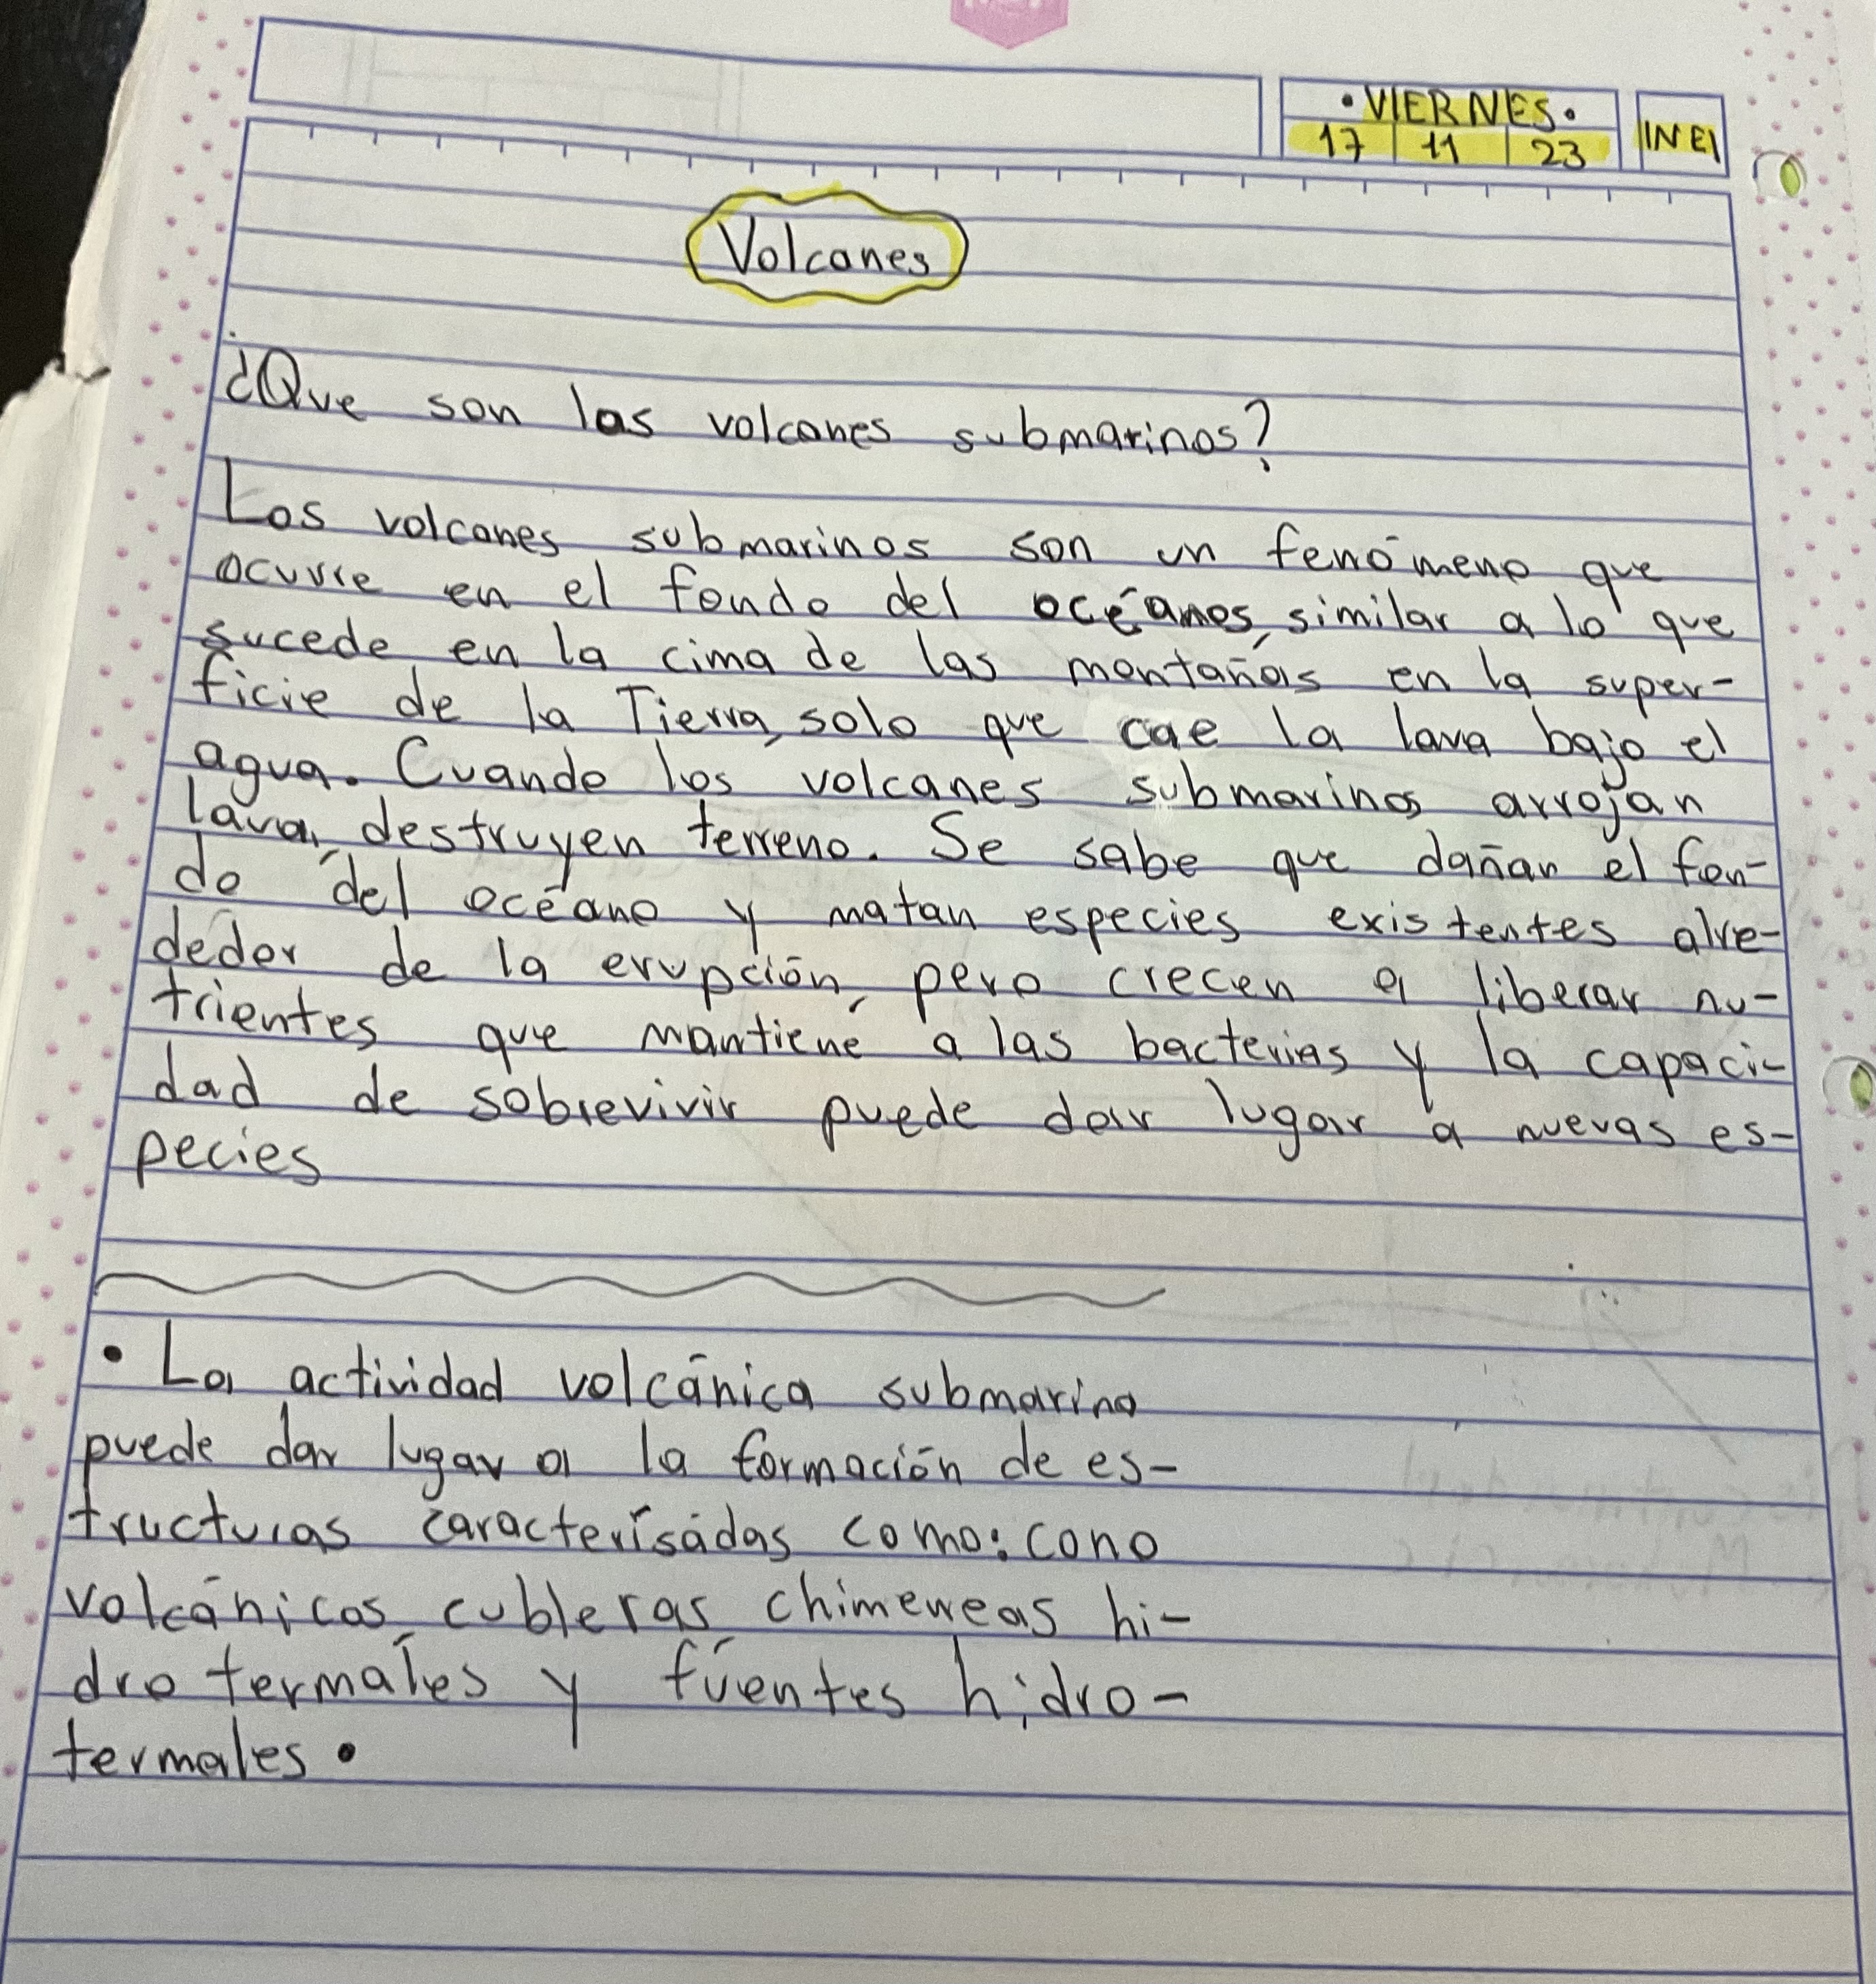 • VIERNES •
17 11 23
INEI
Volcanes
¿Que son los volcanes submarinos?
Los volcanes submarinos son un fenómeno que
ocurre en el fondo del océanos, similar a lo que
sucede en la cima de las montañas en la super-
ficie de la Tierra, solo que cae la lava bajo el
agua. Cuando los volcanes submarinos arrojan
lava, destruyen terreno. Se sabe que dañan el fon-
do del océano y matan especies existentes alre-
dedor de la erupción, pero crecen a liberar nu-
trientes que mantiene a las bacterias y la capaci-
dad de sobrevivir puede dar lugar a nuevas es-
pecies
• La actividad volcánica submarina
puede dar lugar a la formación de es-
tructuras caracterísadas como: cono
volcánicos, cubleras, chimeneas hi-
drotermales y fuentes hidro-
termales.